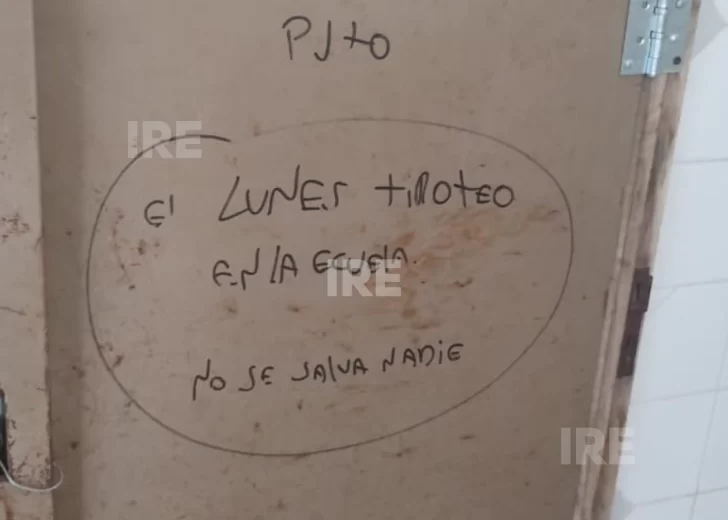 PJto
IRE
El LUNES tiroteo
EN lA EscuElA.
IRE
NO SE SAlVA NADiE
IRE